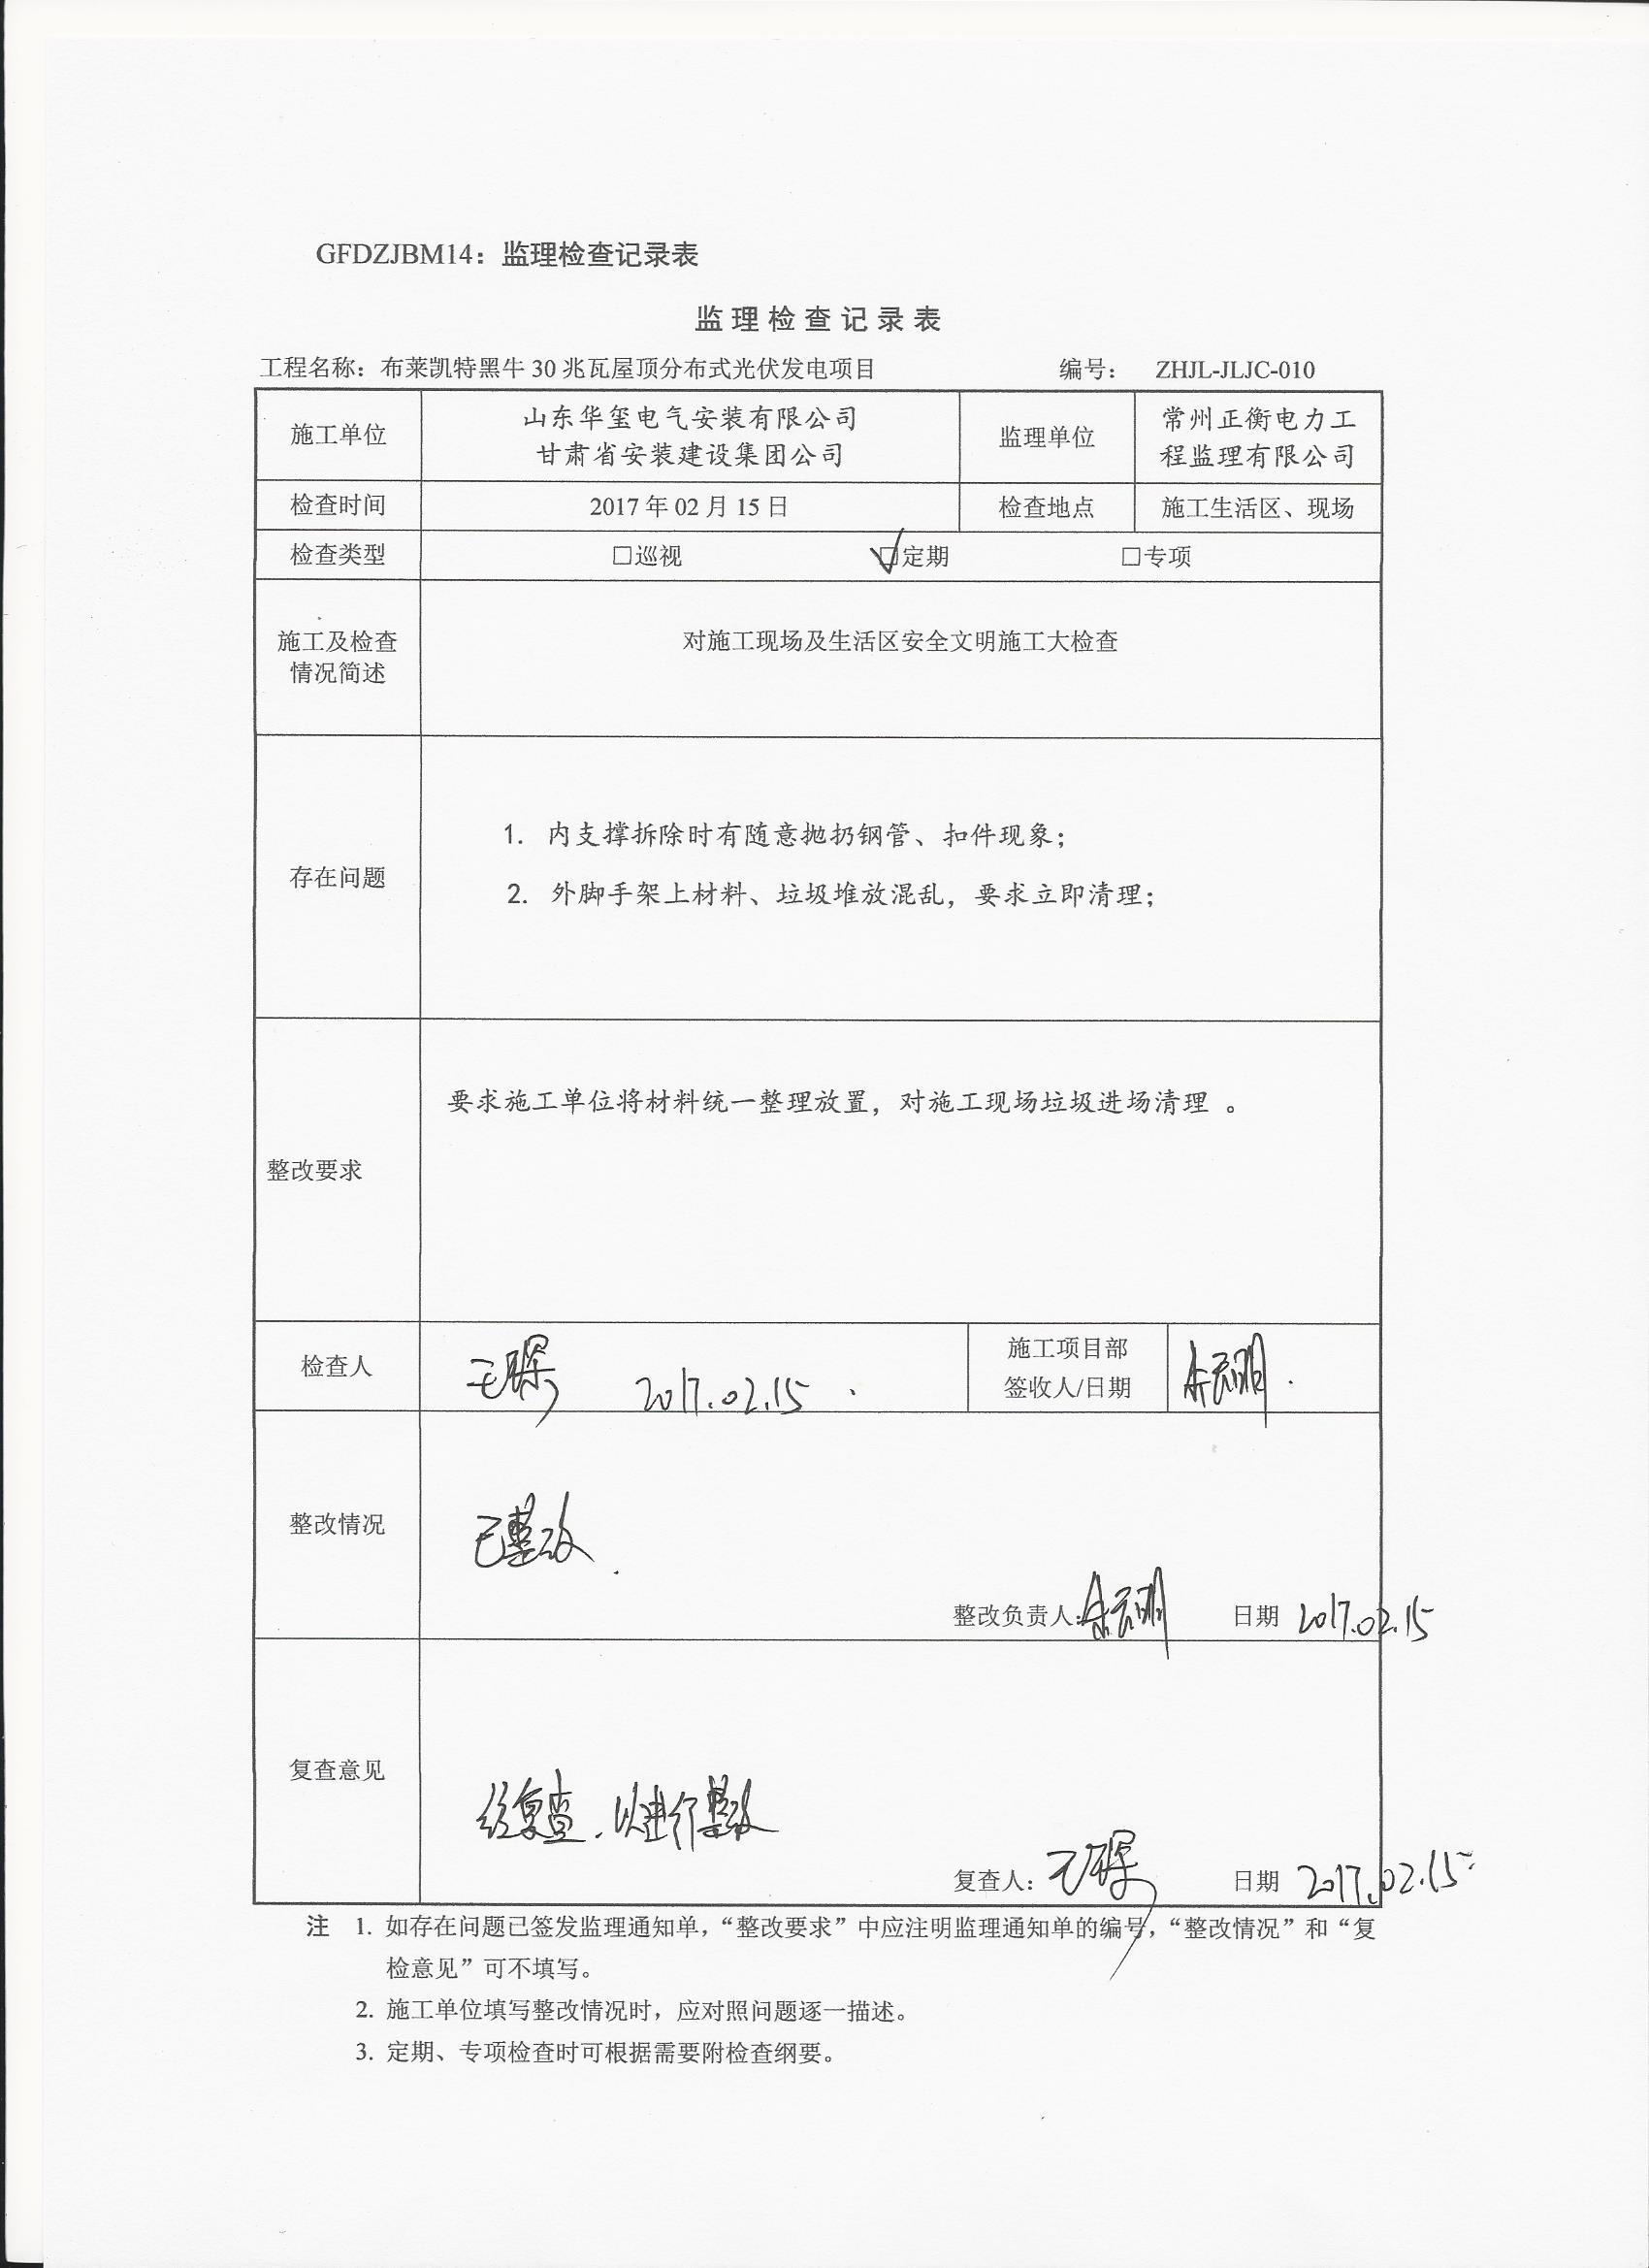 GFDZJBM14：监理检查记录表
监理检查记录表
工程名称：布莱凯特黑牛 30 兆瓦屋顶分布式光伏发电项目 编号： ZHJL-JLJC-010
施工单位 山东华玺电气安装有限公司 甘肃省安装建设集团公司 监理单位 常州正衡电力工程监理有限公司
检查时间 2017 年 02 月 15 日 检查地点 施工生活区、现场
检查类型 □巡视 ☑定期 □专项
施工及检查
情况简述
对施工现场及生活区安全文明施工大检查
存在问题
1. 内支撑拆除时有随意抛扔钢管、扣件现象；
2. 外脚手架上材料、垃圾堆放混乱，要求立即清理；
整改要求
要求施工单位将材料统一整理放置，对施工现场垃圾进场清理 。
检查人 2017.02.15
施工项目部
签收人/日期
整改情况
已整改.
整改负责人： 日期 2017.02.15
复查意见
经复查.以进行整改
复查人： 日期 2017.02.15
注 1. 如存在问题已签发监理通知单，“整改要求”中应注明监理通知单的编号，“整改情况”和“复
检意见”可不填写。
2. 施工单位填写整改情况时，应对照问题逐一描述。
3. 定期、专项检查时可根据需要附检查纲要。